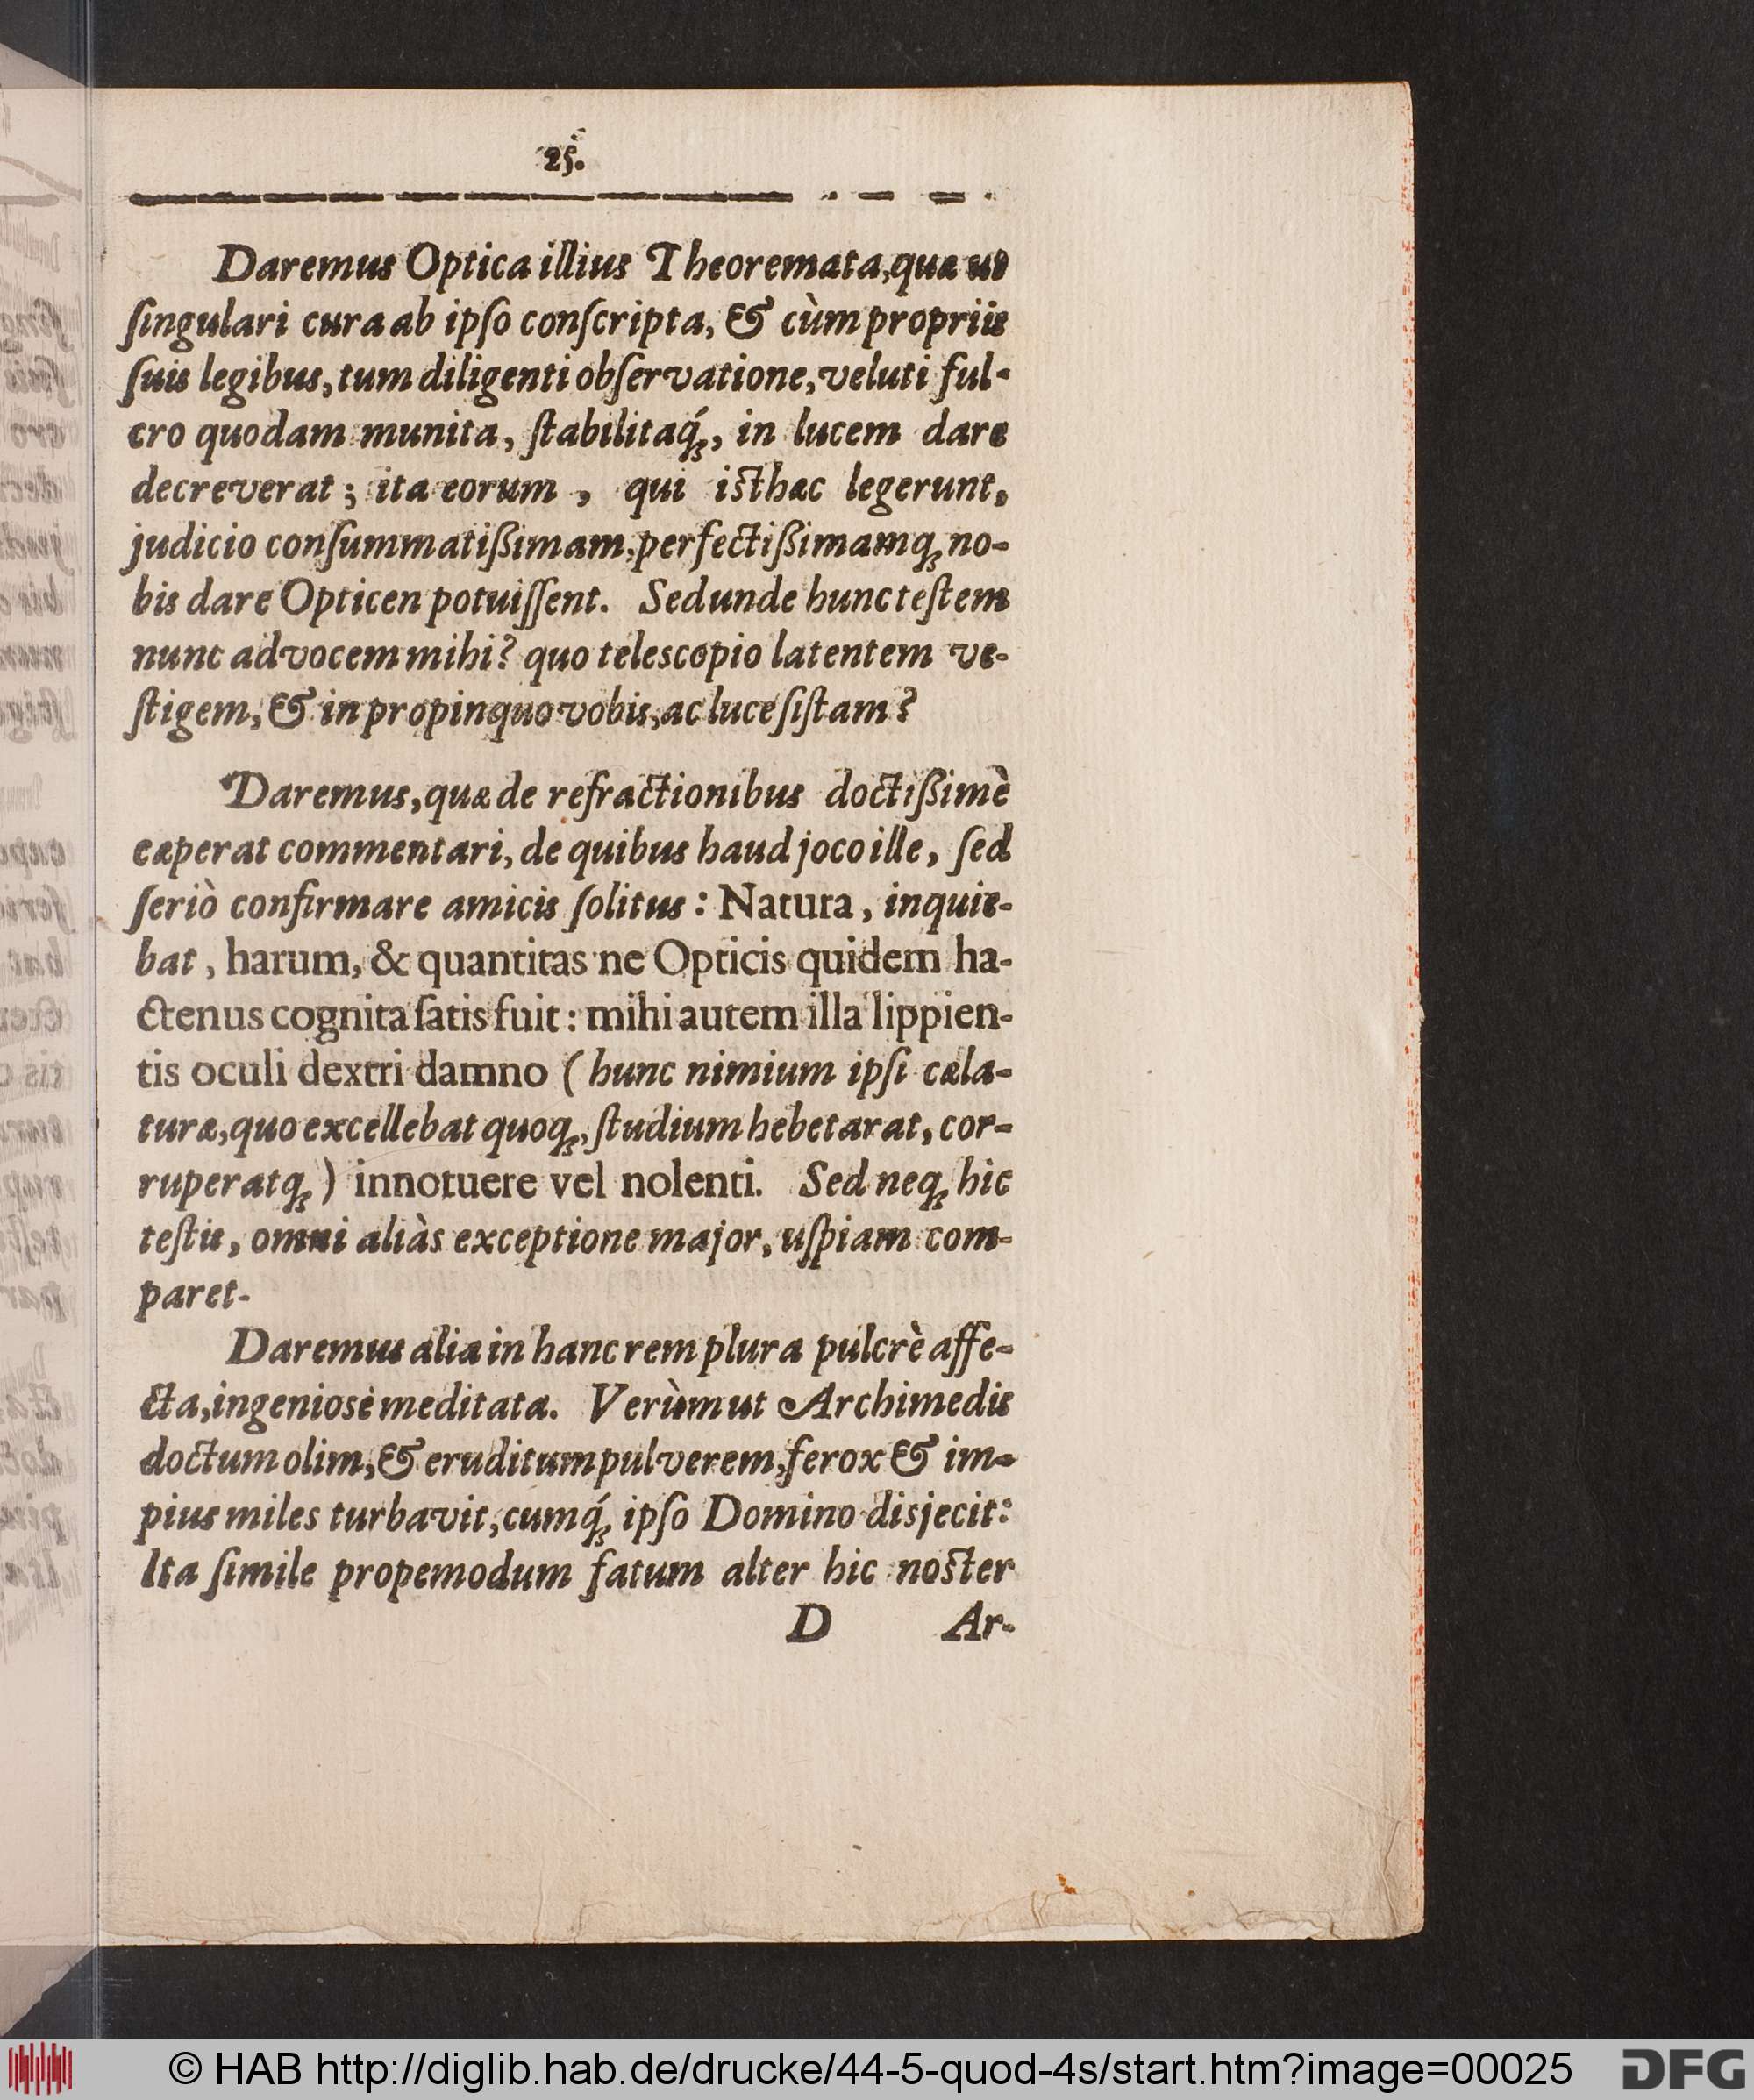 25.
Daremus Optica illius Theoremata, quæ ut
ſingulari cura ab ipſo conſcripta, & cùm propriis
ſuis legibus, tum diligenti obſervatione, veluti ful-
cro quodam munita, ſtabilitaq́ꝫ, in lucem dare
decreverat; ita eorum, qui isthæc legerunt,
judicio conſummatißimam, perfectißimamqꝫ no-
bis dare Opticen potuiſſent. Sed unde hunc teſtem
nunc advocem mihi? quo telescopio latentem ve-
ſtigem, & in propinquo vobis, ac luce ſiſtam?
Daremus, quæ de refractionibus doctißimè
cæperat commentari, de quibus haud joco ille, ſed
ſeriò confirmare amicis ſolitus: Natura, inquie-
bat, harum, & quantitas ne Opticis quidem ha-
ctenus cognita ſatis fuit: mihi autem illa lippien-
tis oculi dextri damno (hunc nimium ipſi cæla-
turæ, quo excellebat quoqꝫ, ſtudium hebetarat, cor-
ruperatqꝫ) innotuere vel nolenti. Sed neqꝫ hic
teſtis, omni aliàs exceptione major, uſpiam com-
paret.
Daremus alia in hanc rem plura pulcrè affe-
cta, ingeniosè meditata. Verùm ut Archimedis
doctum olim, & eruditum pulverem, ferox & im-
pius miles turbavit, cumq́ꝫ ipſo Domino disjecit:
Ita ſimile propemodum fatum alter hic noster
D Ar-
© HAB http://diglib.hab.de/drucke/44-5-quod-4s/start.htm?image=00025
DFG